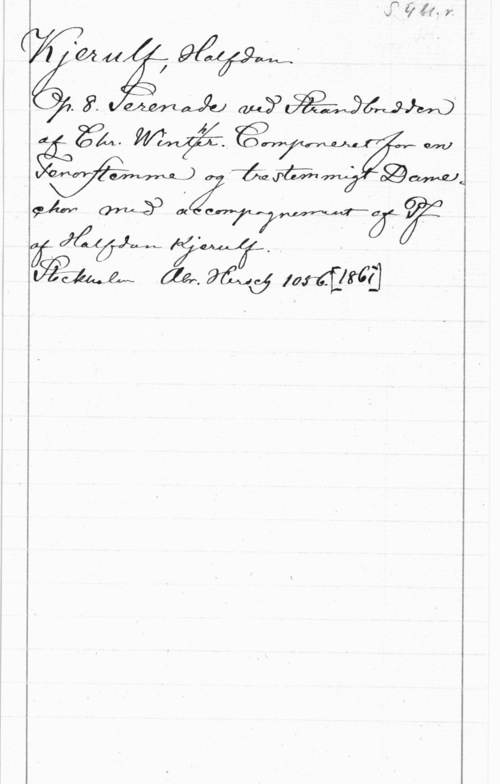 Kjerulf, Halfdan.
Op. 8. Serenade ved Strandbredden
af Chr. Winther. Componeret for en
Tenorstemme og trestemmigt Dame-
chor med accompagnement af Pf
af Halfdan Kjerulf.
Stockholm Abr. Hirsch 1056. [1861]